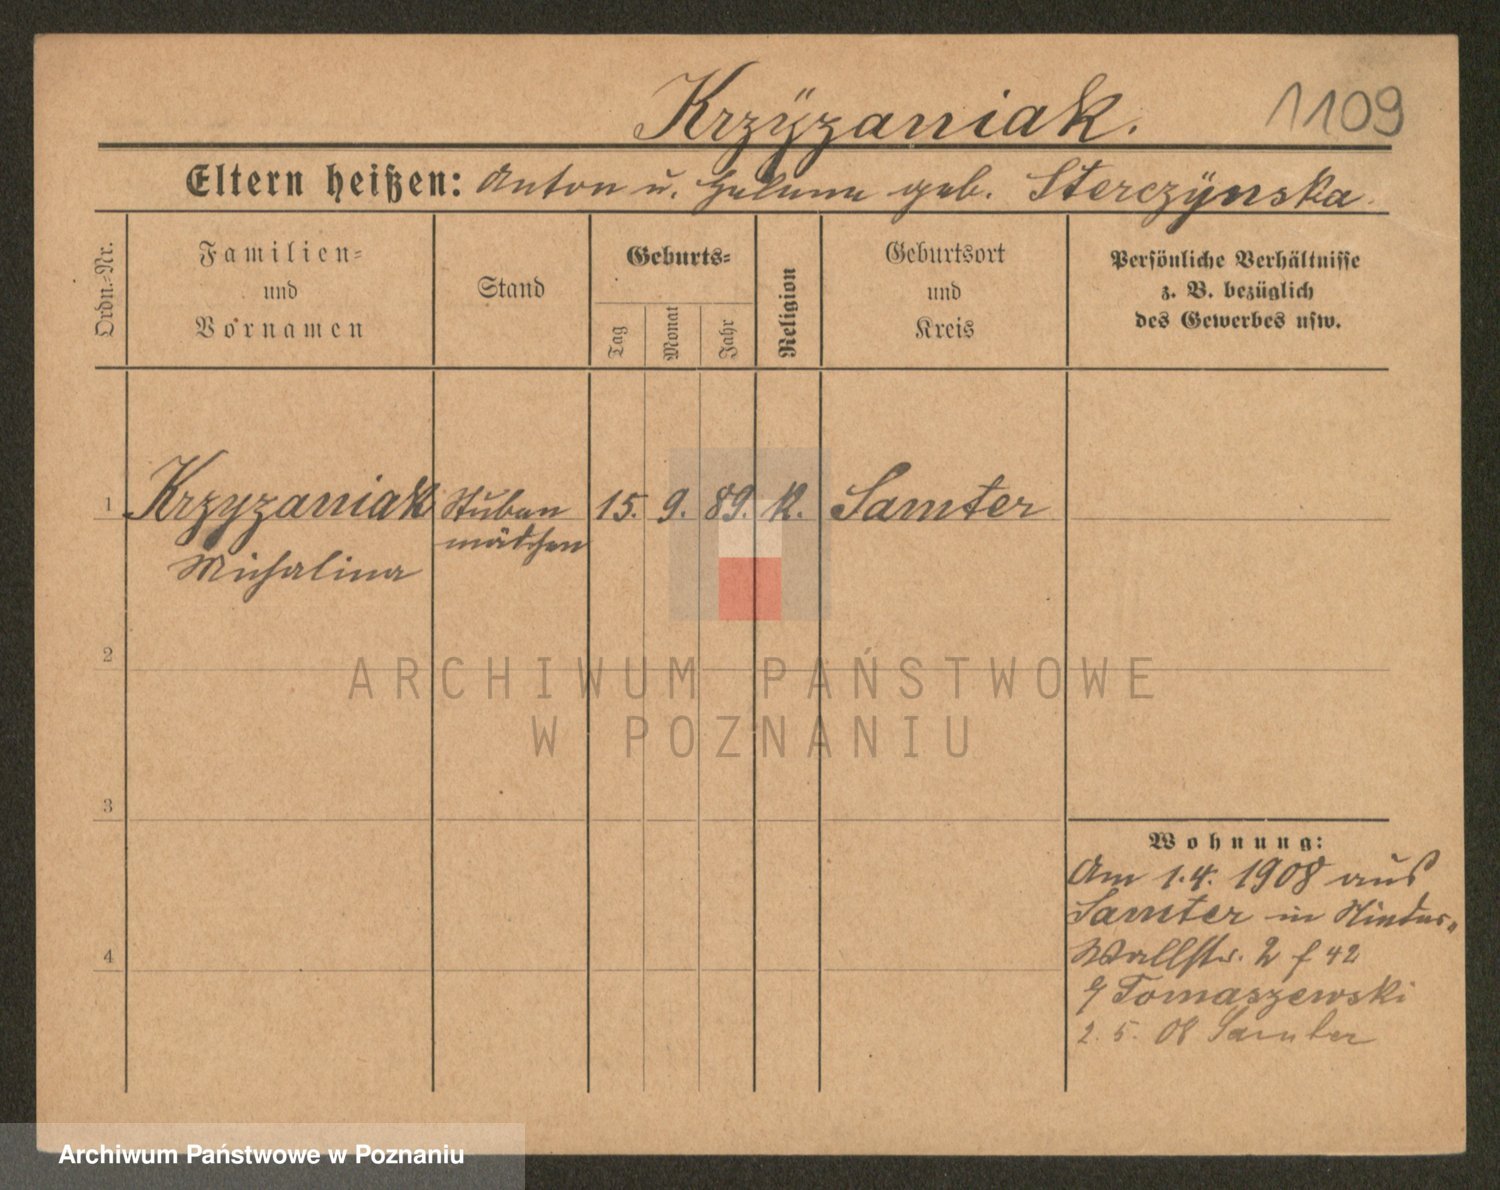 Krzÿzaniak.
1109
Eltern heißen: Anton u. Helena geb. Sterczÿnska.
Ordn.-Nr.
Familien-
und
Vornamen
Stand
Geburts-
Tag
Monat
Jahr
Religion
Geburtsort
und
Kreis
Persönliche Verhältnisse
z. B. bezüglich
des Gewerbes usw.
1 Krzyzaniak Stuben 15. 9. 89. K. Samter
mädchen
Michalina
2
ARCHIWUM PAŃSTWOWE
W POZNANIU
3
Wohnung:
Am 1.4. 1908 aus
Samter in Hinter-
Wallstr. 2 f 42
Tomaszewski
2. 5. 08 Samter
4
Archiwum Państwowe w Poznaniu